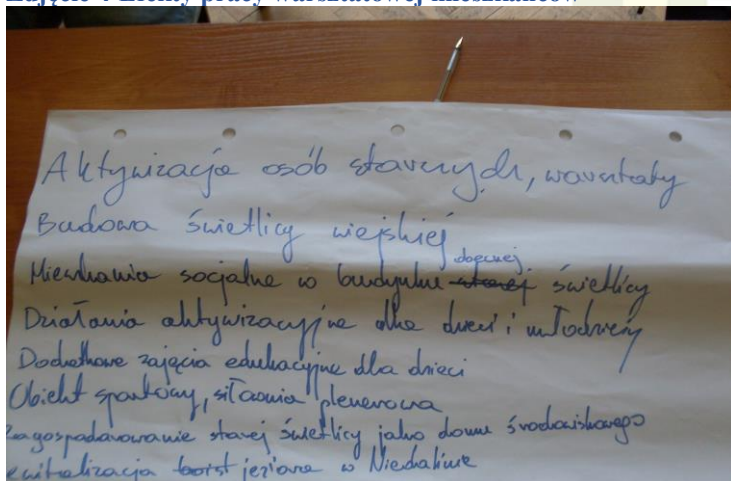 Zdjęcie 4 Efekty pracy warsztatowej mieszkańców
Aktywizacja osób starszych, warsztaty
Budowa świetlicy wiejskiej
Mieszkania socjalne w budynku starej obecnej świetlicy
Działania aktywizacyjne dla dzieci i młodzieży
Dodatkowe zajęcia edukacyjne dla dzieci
Obiekt sportowy, siłownia plenerowa
zagospodarowanie starej świetlicy jako domu środowiskowego
rewitalizacja jeziora w Niedalinie